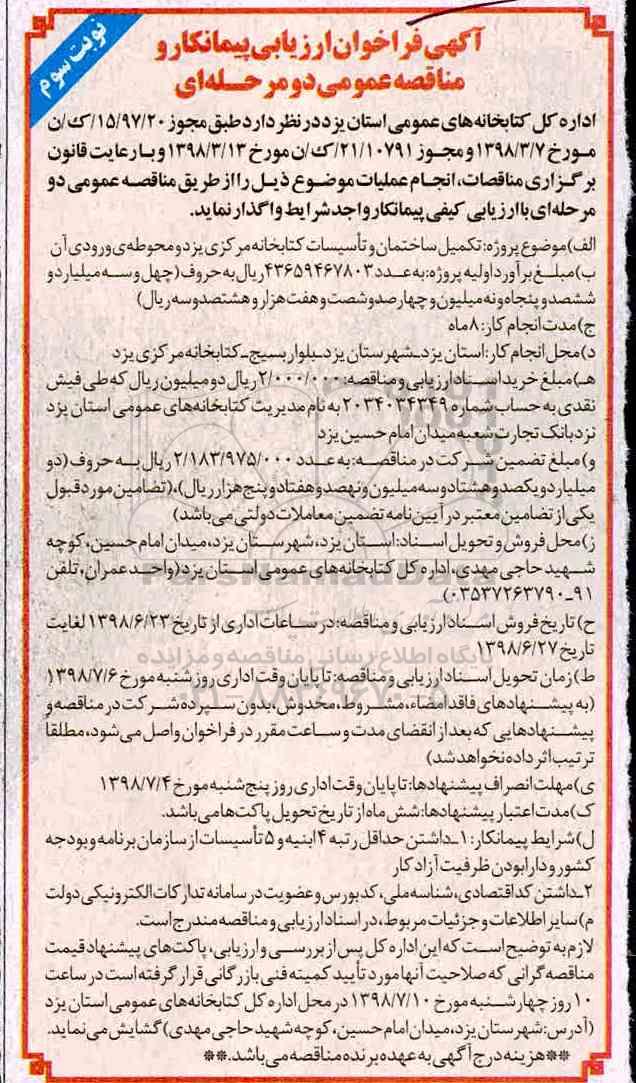 نوبت سوم
آگهی فراخوان ارزیابی پیمانکار و
مناقصه عمومی دو مرحله‌ای
اداره کل کتابخانه‌های عمومی استان یزد در نظر دارد طبق مجوز ۱۵/۹۷/۲۰/ک/ن
مورخ ۱۳۹۸/۳/۷ و مجوز ۲۱/۱۰۷۹۱/ک/ن مورخ ۱۳۹۸/۳/۱۳ و با رعایت قانون
برگزاری مناقصات، انجام عملیات موضوع ذیل را از طریق مناقصه عمومی دو
مرحله‌ای با ارزیابی کیفی پیمانکار واجد شرایط واگذار نماید.
الف) موضوع پروژه: تکمیل ساختمان و تأسیسات کتابخانه مرکزی یزد و محوطه‌ی ورودی آن
ب) مبلغ برآورد اولیه پروژه: به عدد ۴۳۶۵۹۴۶۷۸۰۳ ریال به حروف (چهل و سه میلیارد و
ششصد و پنجاه و نه میلیون و چهارصد و شصت و هفت هزار و هشتصد و سه ریال)
ج) مدت انجام کار: ۸ ماه
د) محل انجام کار: استان یزد ـ شهرستان یزد ـ بلوار بسیج ـ کتابخانه مرکزی یزد
هـ) مبلغ خرید اسناد ارزیابی و مناقصه: ۲/۰۰۰/۰۰۰ ریال دو میلیون ریال که طی فیش
نقدی به حساب شماره ۲۰۳۴۰۳۴۳۴۹ به نام مدیریت کتابخانه‌های عمومی استان یزد
نزد بانک تجارت شعبه میدان امام حسین یزد
و) مبلغ تضمین شرکت در مناقصه: به عدد ۲/۱۸۳/۹۷۵/۰۰۰ ریال به حروف (دو
میلیارد و یکصد و هشتاد و سه میلیون و نهصد و هفتاد و پنج هزار ریال). (تضامین مورد قبول
یکی از تضامین معتبر در آیین نامه تضمین معاملات دولتی می باشد)
ز) محل فروش و تحویل اسناد: استان یزد، شهرستان یزد، میدان امام حسین، کوچه
شهید حاجی مهدی، اداره کل کتابخانه‌های عمومی استان یزد (واحد عمران، تلفن
۹۱ـ۰۳۵۳۷۲۶۳۷۹۰)
ح) تاریخ فروش اسناد ارزیابی و مناقصه: در ساعات اداری از تاریخ ۱۳۹۸/۶/۲۳ لغایت
تاریخ ۱۳۹۸/۶/۲۷
پایگاه اطلاع رسانی مناقصه و مزایده
ط) زمان تحویل اسناد ارزیابی و مناقصه: تا پایان وقت اداری روز شنبه مورخ ۱۳۹۸/۷/۶
(به پیشنهادهای فاقد امضاء، مشروط، مخدوش، بدون سپرده شرکت در مناقصه و
پیشنهادهایی که بعد از انقضای مدت و ساعت مقرر در فراخوان واصل می شود، مطلقا
ترتیب اثر داده نخواهد شد)
ی) مهلت انصراف پیشنهادها: تا پایان وقت اداری روز پنج شنبه مورخ ۱۳۹۸/۷/۴
ک) مدت اعتبار پیشنهادها: شش ماه از تاریخ تحویل پاکت ها می باشد.
ل) شرایط پیمانکار: ۱ـ داشتن حداقل رتبه ۴ ابنیه و ۵ تأسیسات از سازمان برنامه و بودجه
کشور و دارا بودن ظرفیت آزاد کار
۲ـ داشتن کد اقتصادی، شناسه ملی، کد بورس و عضویت در سامانه تدارکات الکترونیکی دولت
م) سایر اطلاعات و جزئیات مربوط، در اسناد ارزیابی و مناقصه مندرج است.
لازم به توضیح است که این اداره کل پس از بررسی و ارزیابی، پاکت‌های پیشنهاد قیمت
مناقصه گرانی که صلاحیت آنها مورد تأیید کمیته فنی بازرگانی قرار گرفته است در ساعت
۱۰ روز چهارشنبه مورخ ۱۳۹۸/۷/۱۰ در محل اداره کل کتابخانه‌های عمومی استان یزد
(آدرس: شهرستان یزد، میدان امام حسین، کوچه شهید حاجی مهدی) گشایش می نماید.
**هزینه درج آگهی به عهده برنده مناقصه می باشد.**